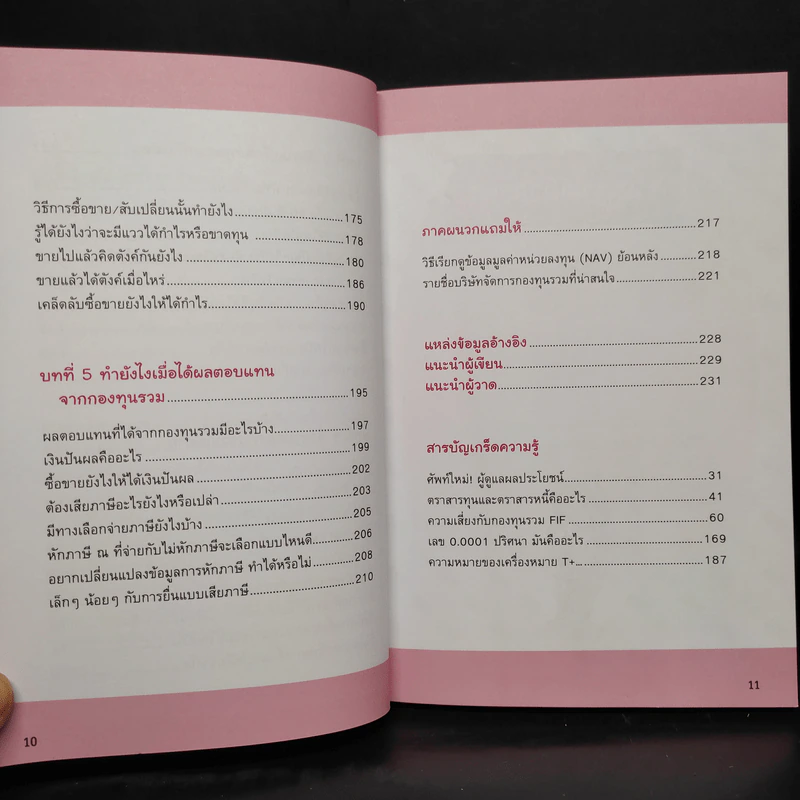 วิธีการซื้อขาย/สับเปลี่ยนนั้นทำยังไง 175
รู้ได้ยังไงว่าจะมีแววได้กำไรหรือขาดทุน 178
ขายไปแล้วคิดตังค์กันยังไง 180
ขายแล้วได้ตังค์เมื่อไหร่ 186
เคล็ดลับซื้อขายยังไงให้ได้กำไร 190
บทที่ 5 ทำยังไงเมื่อได้ผลตอบแทน
จากกองทุนรวม 195
ผลตอบแทนที่ได้จากกองทุนรวมมีอะไรบ้าง 197
เงินปันผลคืออะไร 199
ซื้อขายยังไงให้ได้เงินปันผล 202
ต้องเสียภาษีอะไรยังไงหรือเปล่า 203
มีทางเลือกจ่ายภาษียังไงบ้าง 205
หักภาษี ณ ที่จ่ายกับไม่หักภาษีจะเลือกแบบไหนดี 206
อยากเปลี่ยนแปลงข้อมูลการหักภาษี ทำได้หรือไม่ 208
เล็กๆ น้อยๆ กับการยื่นแบบเสียภาษี 210
10
ภาคผนวกแถมให้ 217
วิธีเรียกดูข้อมูลมูลค่าหน่วยลงทุน (NAV) ย้อนหลัง 218
รายชื่อบริษัทจัดการกองทุนรวมที่น่าสนใจ 221
แหล่งข้อมูลอ้างอิง 228
แนะนำผู้เขียน 229
แนะนำผู้วาด 231
สารบัญเกร็ดความรู้
ศัพท์ใหม่! ผู้ดูแลผลประโยชน์ 31
ตราสารทุนและตราสารหนี้คืออะไร 41
ความเสี่ยงกับกองทุนรวม FIF 60
เลข 0.0001 ปริศนา มันคืออะไร 169
ความหมายของเครื่องหมาย T+... 187
11